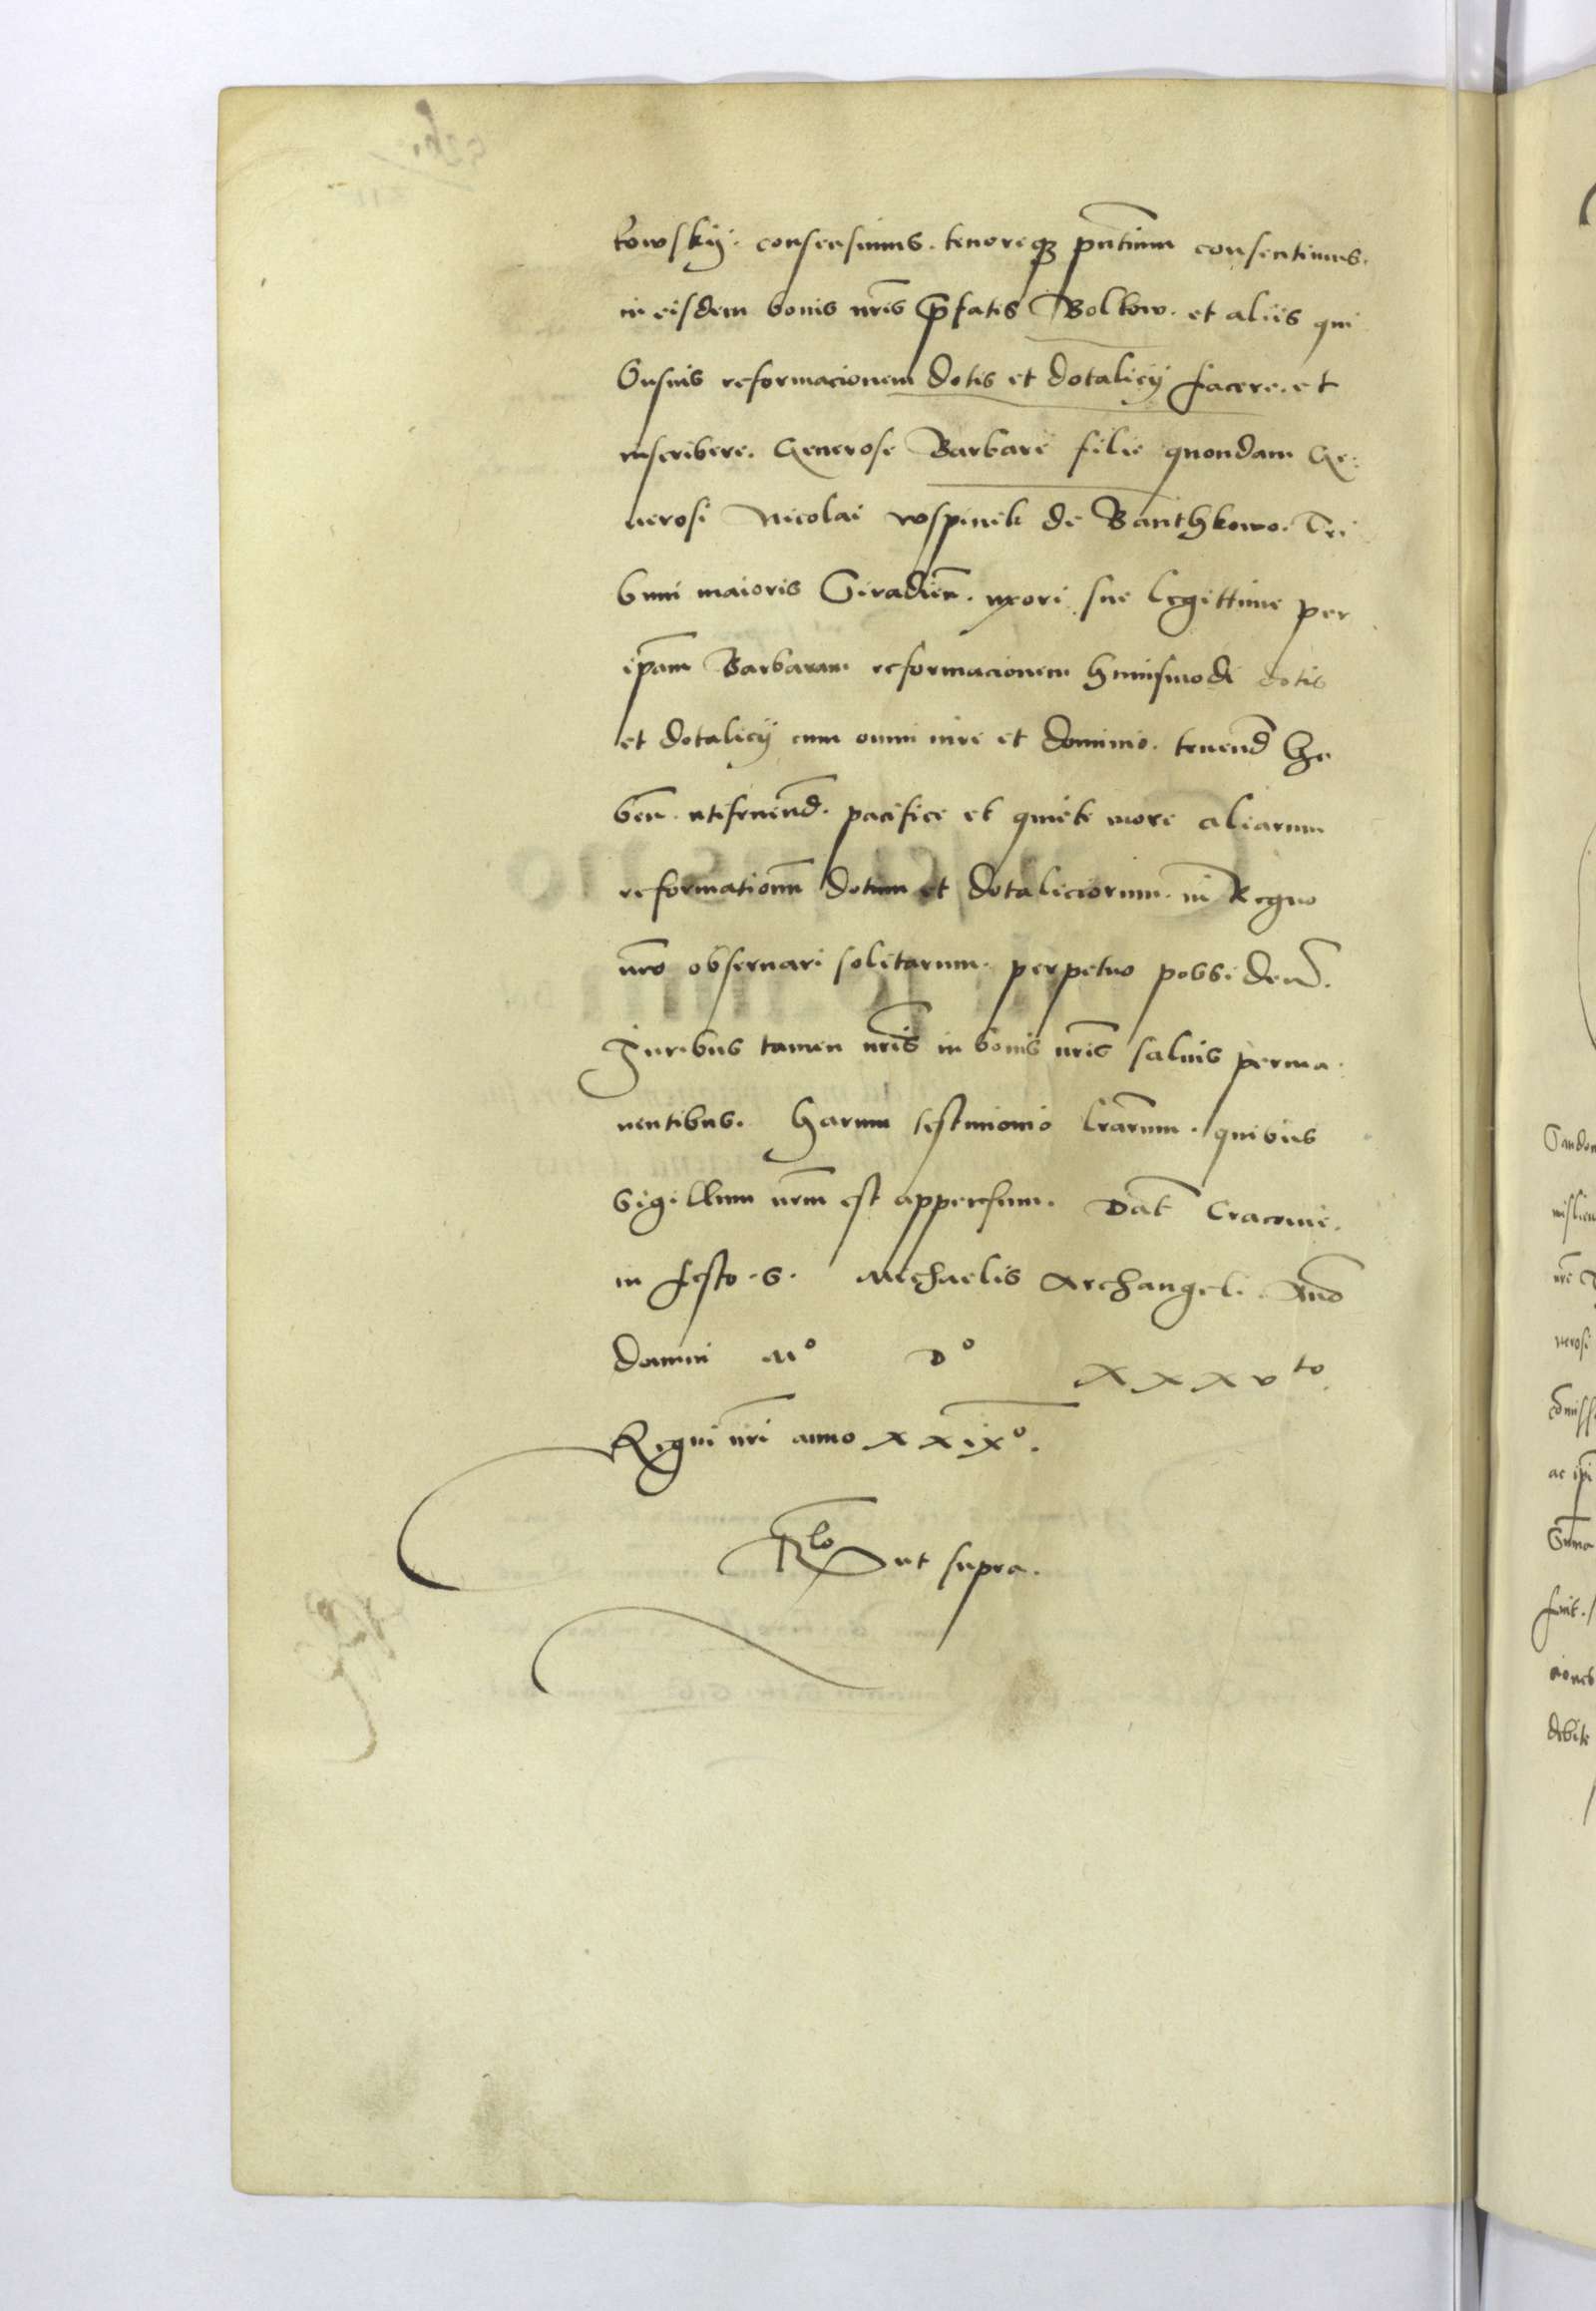 kowskÿ. consensimus. tenoreqз pn̄tium consentimus.
in eisdem bonis nr̄is p̄fatis Volkow. et aliis qui
busuis reformacionem dotis et dotalicÿ facere. et
inscribere. Generose Barbare filie quondam Ge:
nerosi Nicolai wspinek de Banthkowo. Tri
buni maioris Siradien̄. uxori sue legittime per
ip̄am Barbaram reformacionem huiusmodi dotis
et dotalicÿ cum omni iure et dominio. tenend̄ ha
ben̄. utifruend̄. pacifice et quiete more aliarum
reformationū dotum et dotaliciorum. in Regno
nr̄o obseruari solitarum. perpetuo possiden̄.
Juribus tamen nr̄is in bonis nr̄is saluis perma:
nentibus. Harum testimonio lr̄arum. quibus
Sigillum nr̄m est appensum. Dat̄ Cracouie.
in festo. S. Michaelis Archangeli. Anō
domini Mº Dº xxxvto.
Regni nr̄i anno xxixº.
Rlo ut supra.